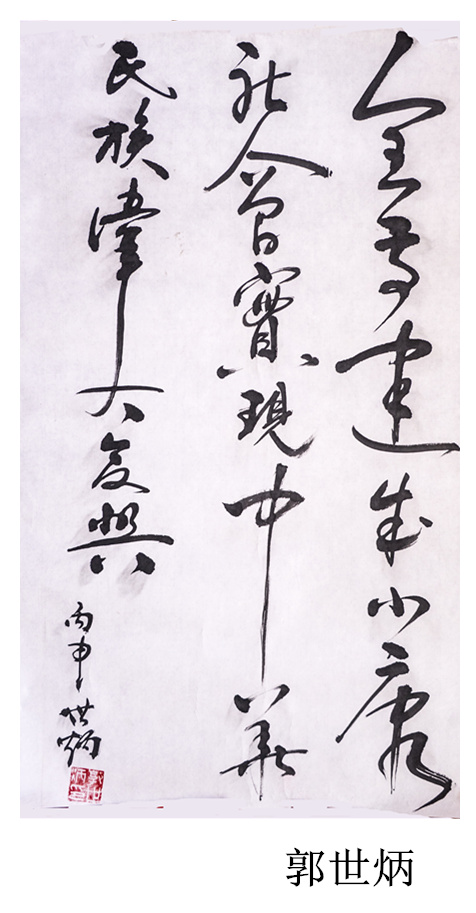 全面建成小康
社會實現中華
民族偉大复興
丙申 世炳
郭世炳印
郭世炳